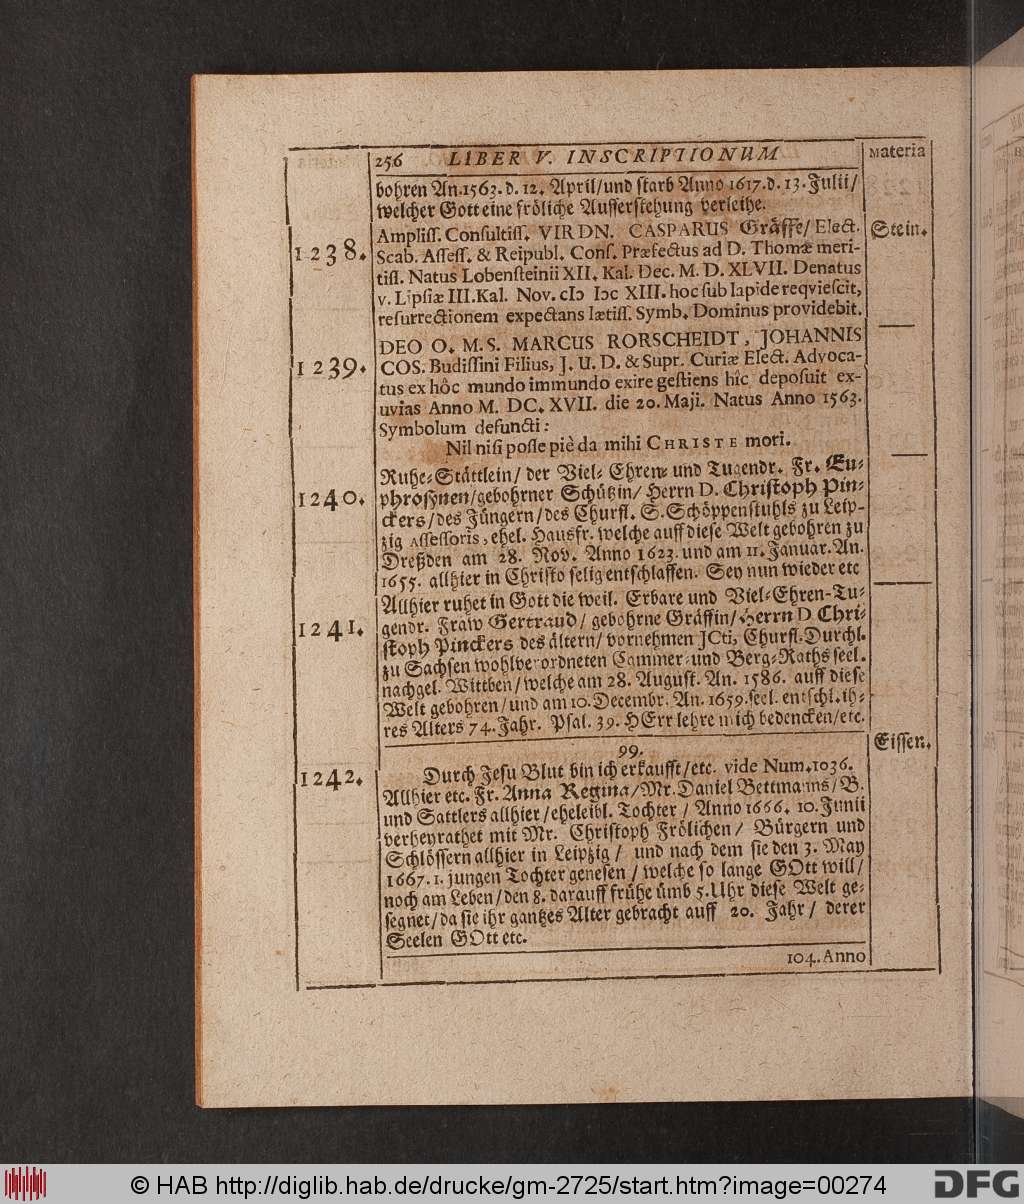 256 LIBER V. INSCRIPTIONUM Materia
bohren An.1563. d. 12. April/und starb Anno 1617. d. 13. Julii/
welcher Gott eine fröliche Aufferstehung verleihe.
1238. Ampliſſ. Conſultiſſ. VIR DN. CASPARUS Gräffe/ Elect. Stein.
Scab. Aſſeſſ. & Reipubl. Conſ. Præfectus ad D. Thomæ meri-
tiſſ. Natus Lobenſteinii XII. Kal. Dec. M. D. XLVII. Denatus
v. Lipſiæ III. Kal. Nov. cIɔ Iɔc XIII. hoc ſub lapide reqvieſcit,
reſurrectionem expectans lætiſſ. Symb. Dominus providebit.
1239. DEO O. M. S. MARCUS RORSCHEIDT, JOHANNIS
COS. Budiſſini Filius, J. U. D. & Supr. Curiæ Elect. Advoca-
tus ex hôc mundo immundo exire geſtiens hîc depoſuit ex-
uvias Anno M. DC. XVII. die 20. Maji. Natus Anno 1563.
Symbolum defuncti:
Nil niſi poſſe piè da mihi CHRISTE mori.
1240. Ruhe-Stättlein/ der Viel-Ehren- und Tugendr. Fr. Eu-
phroſynen/gebohrner Schützin/ Herrn D. Chriſtoph Pin-
ckers/des Jüngern/des Churfl. S. Schöppenſtuhls zu Leip-
zig Aſſeſſoris, ehel. Hausfr. welche auff dieſe Welt gebohren zu
Dreßden am 28. Nov. Anno 1623. und am 11. Januar. An.
1655. allhier in Chriſto ſelig entſchlaffen. Sey nun wieder etc
1241. Allhier ruhet in Gott die weil. Erbare und Viel-Ehren-Tu-
gendr. Fraw Gertraud/ gebohrne Gräffin/ Herrn D Chri-
ſtoph Pinckers des ältern/ vornehmen JCti, Churfl. Durchl.
zu Sachſen wohlverordneten Cammer- und Berg-Raths ſeel.
nachgel. Wittben/ welche am 28. Auguſt. An. 1586. auff dieſe
Welt gebohren/ und am 10. Decembr. An. 1659. ſeel. entſchl. ih-
res Alters 74. Jahr. Pſal. 39. HErr lehre mich bedencken/etc.
99. Eiſſen.
1242. Durch Jeſu Blut bin ich erkaufft/etc. vide Num. 1036.
Allhier etc. Fr. Anna Regina/Mr. Daniel Bettmanns/ B.
und Sattlers allhier/eheleibl. Tochter/ Anno 1666. 10. Junii
verheyrathet mit Mr. Chriſtoph Frölichen/ Bürgern und
Schlöſſern allhier in Leipzig/ und nach dem ſie den 3. May
1667. 1. jungen Tochter geneſen/ welche ſo lange GOtt will/
noch am Leben/den 8. darauff frühe ümb 5. Uhr dieſe Welt ge-
ſegnet/da ſie ihr gantzes Alter gebracht auff 20. Jahr/ derer
Seelen GOtt etc.
104. Anno
© HAB http://diglib.hab.de/drucke/gm-2725/start.htm?image=00274 DFG